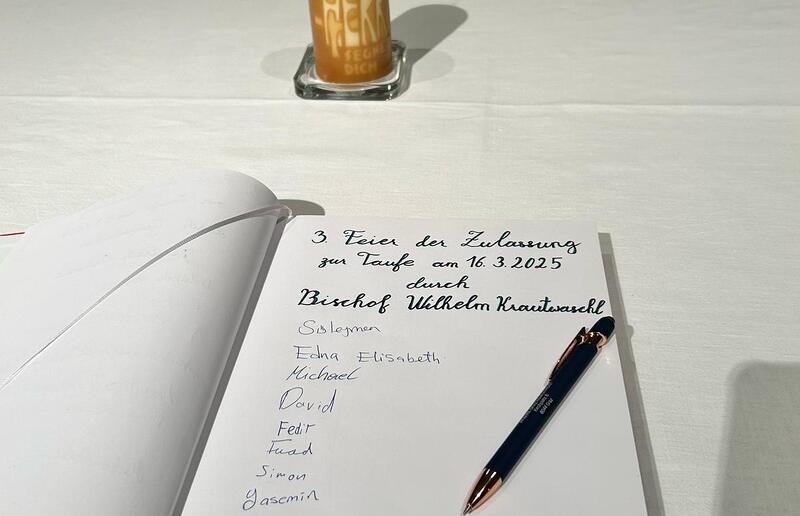 HERR
SEGNE
DICH
3. Feier der Zulassung
zur Taufe am 16.3.2025
durch
Bischof Wilhelm Krautwaschl
Edna Elisabeth
Michael
David
Fedir
Fuad
Simon
Yasemin